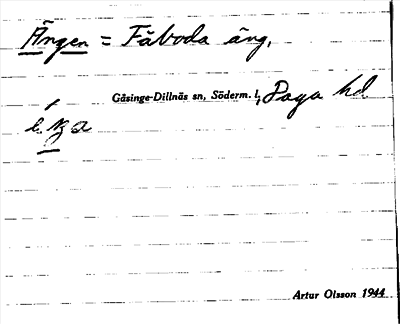 Ängen = Fåboda äng,
Gåsinge-Dillnäs sn, Söderm. l, Daga hd
Artur Olsson 1944